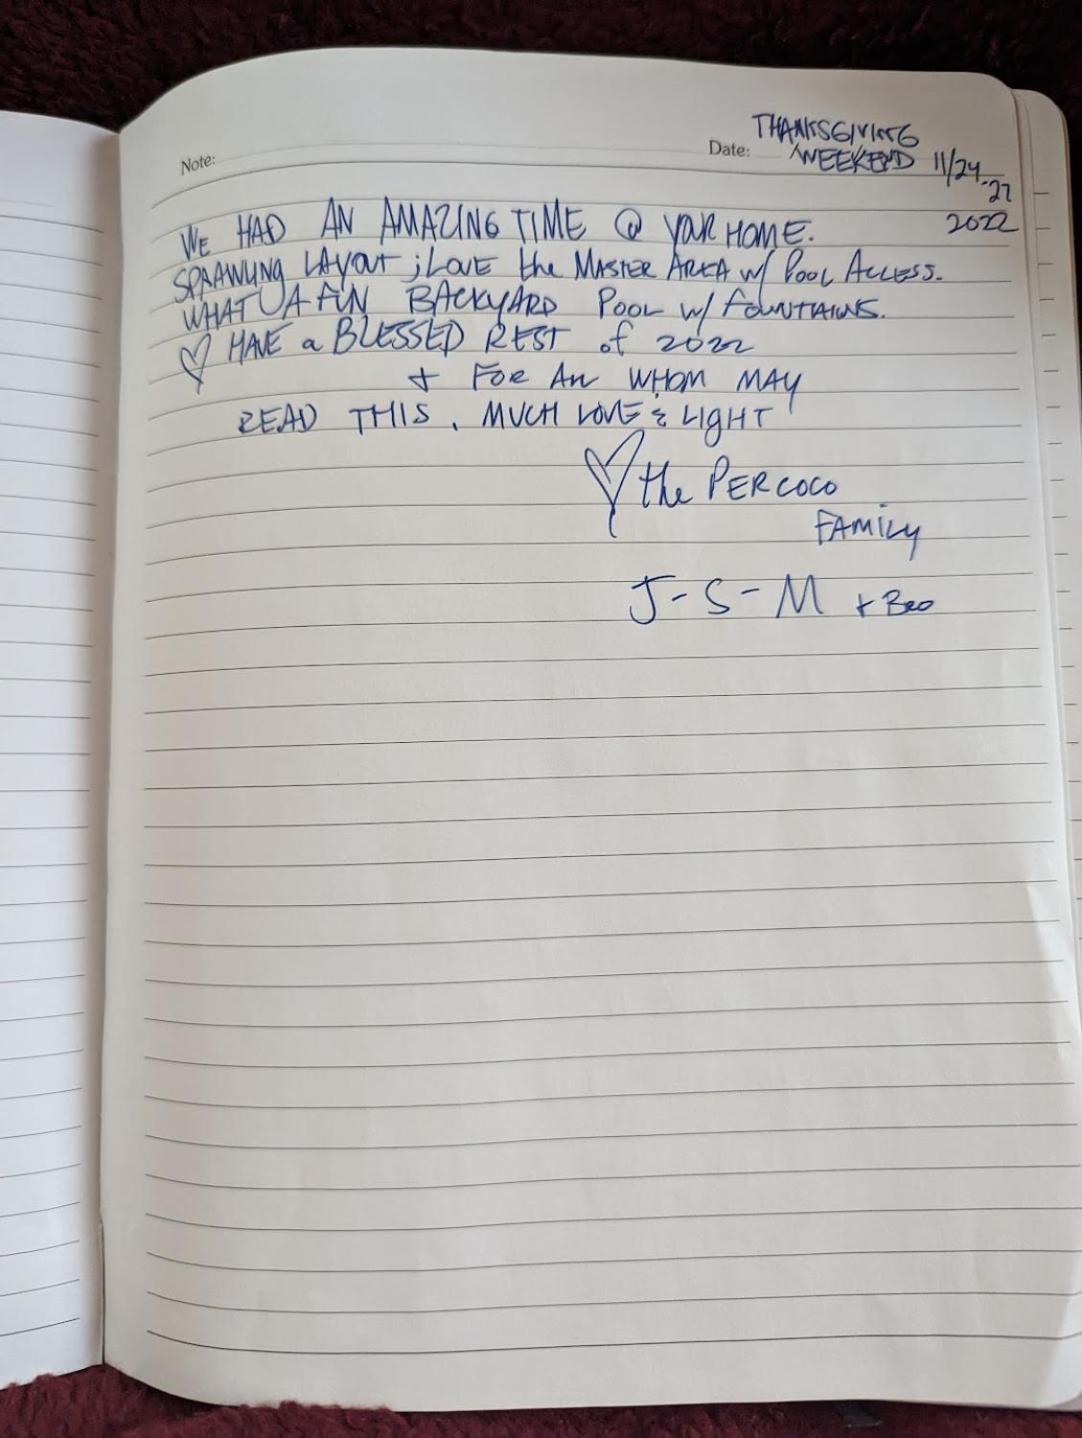 Note:
Date: THANKSGIVING
WEEKEND 11/24
-27
2022
WE HAD AN AMAZING TIME @ YOUR HOME.
SPRAWLING LAYOUT ; LOVE the MASTER AREA w/ POOL ACCESS.
WHAT A FUN BACKYARD POOL w/ FOUNTAINS.
♡ HAVE a BLESSED REST of 2022
+ FOR AN WHOM MAY
READ THIS. MUCH LOVE & LIGHT
♡ the PERCOCO
FAMILY
J-S-M +